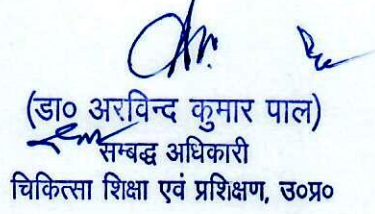 (डा० अरविन्द कुमार पाल)
सम्बद्ध अधिकारी
चिकित्सा शिक्षा एवं प्रशिक्षण, उ०प्र०